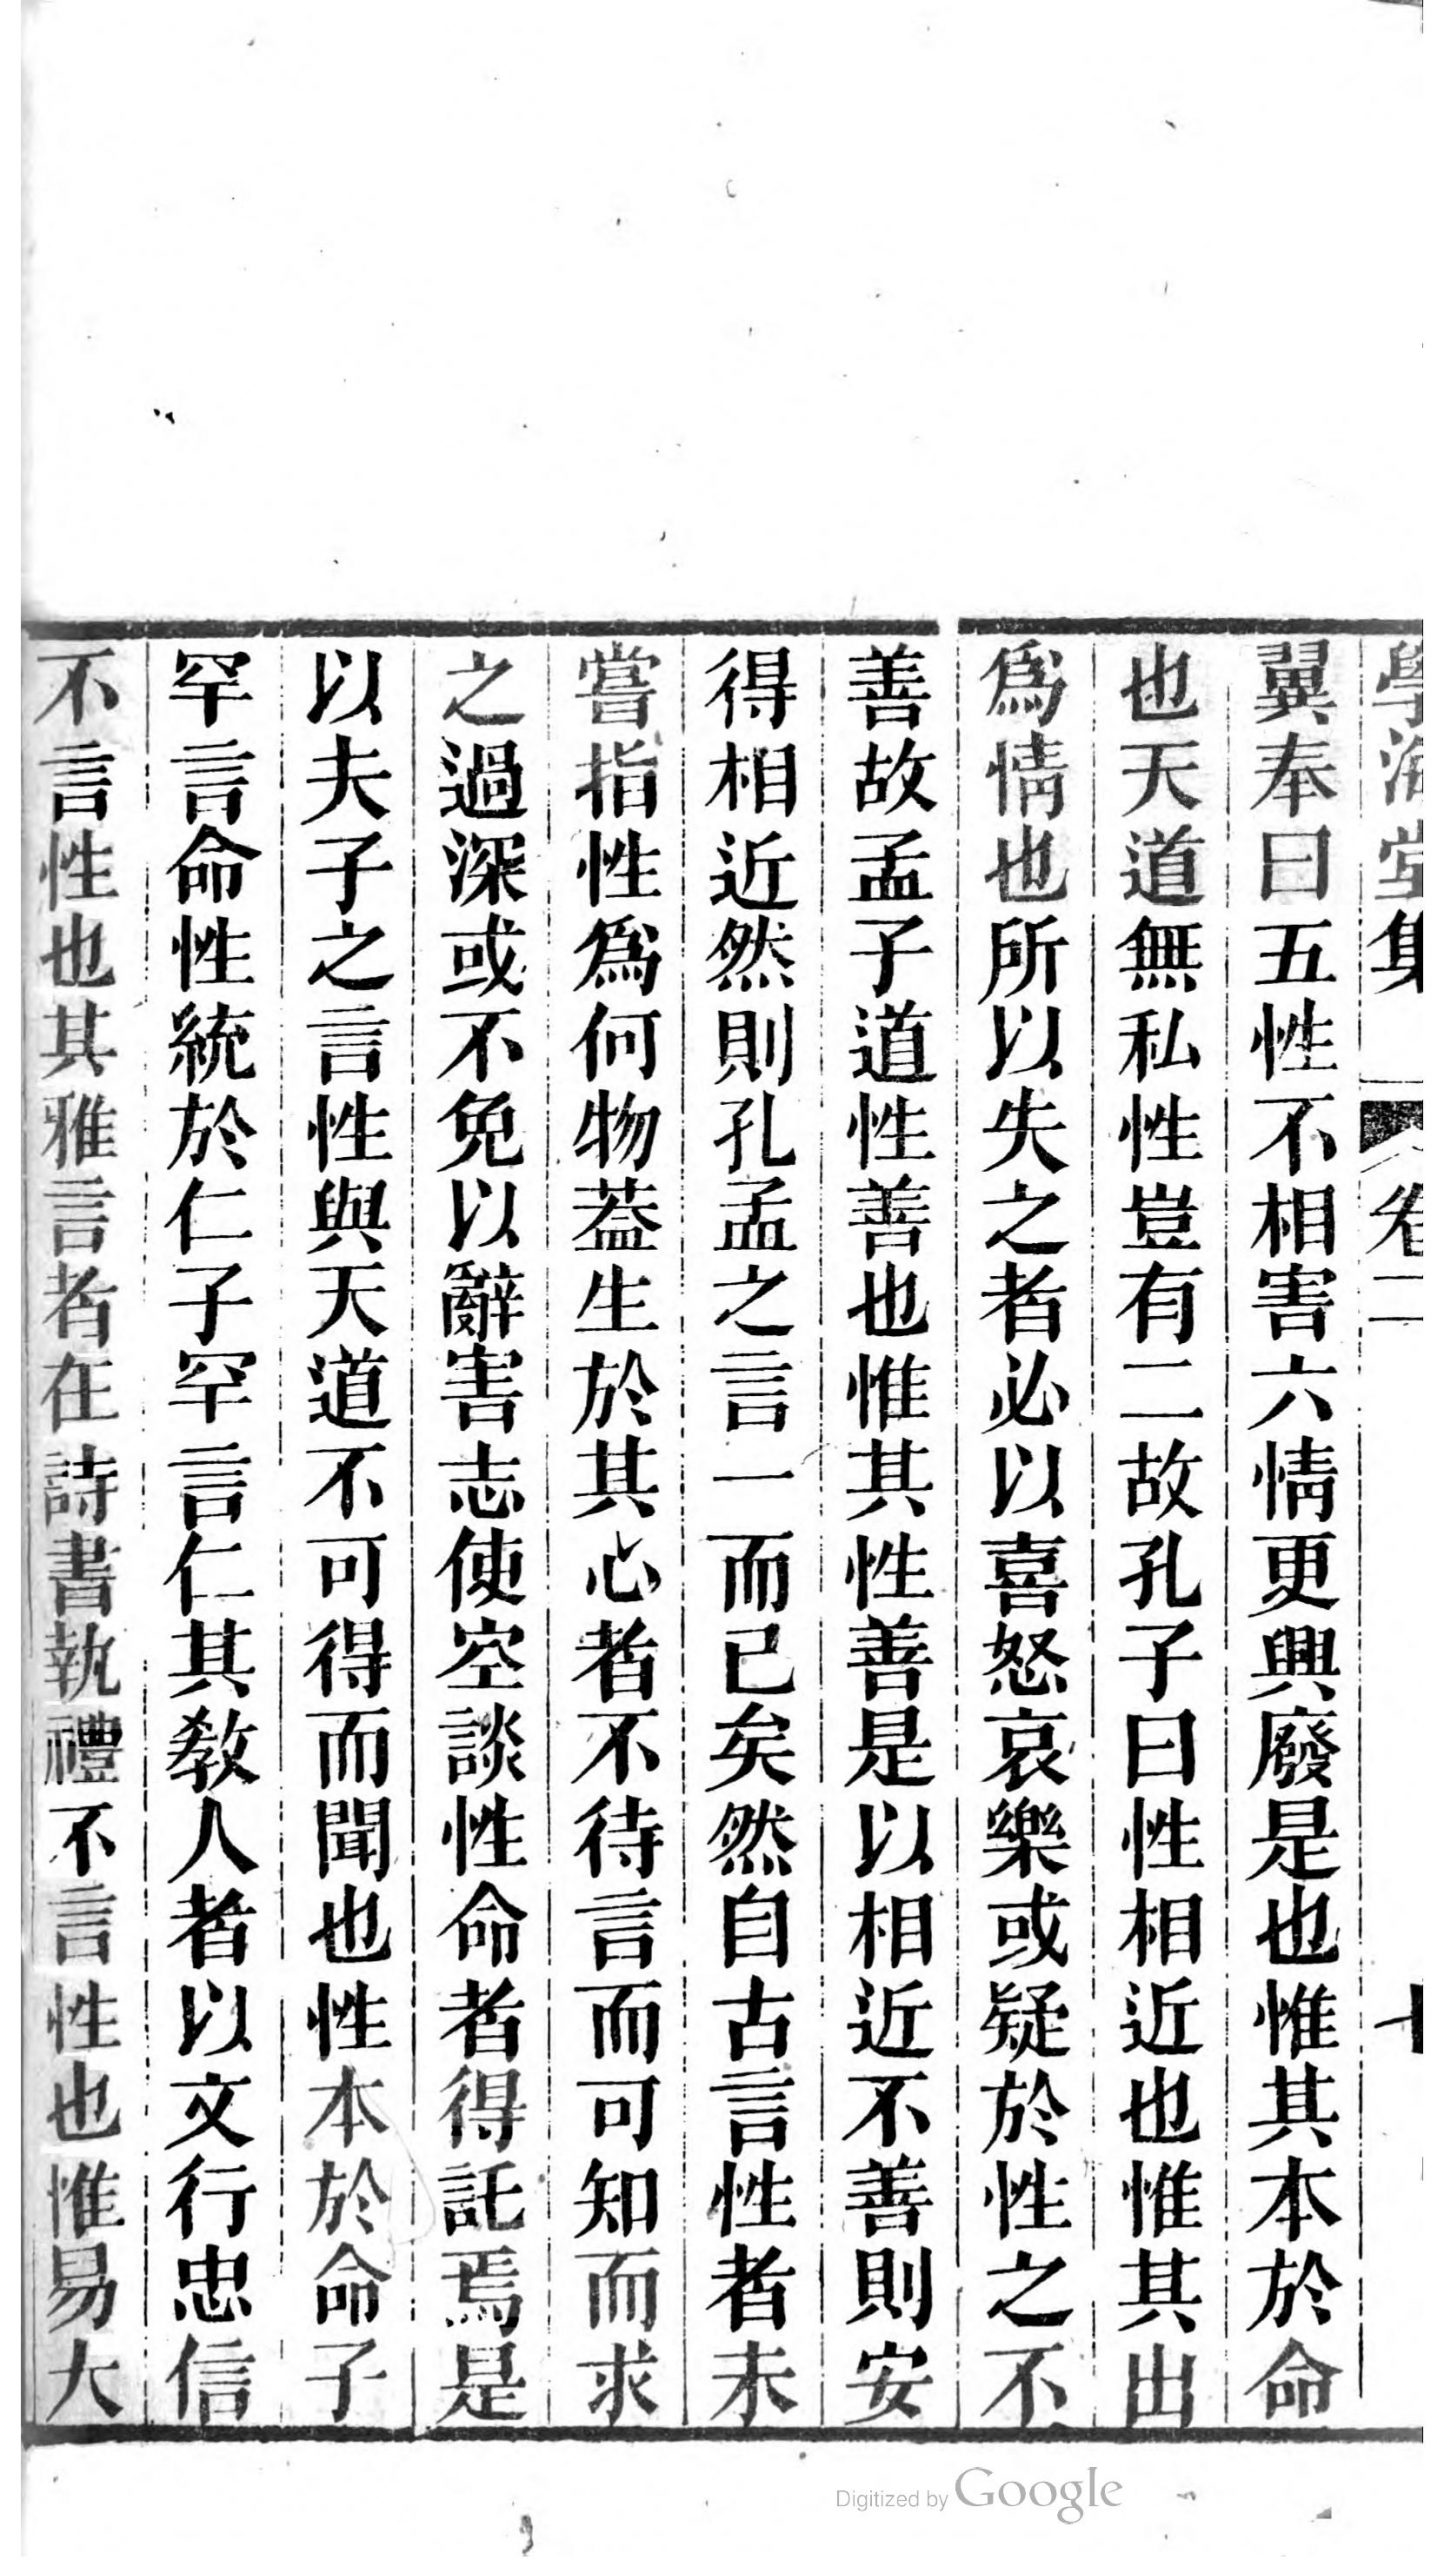 學海堂集 卷二
翼奉曰五性不相害六情更興廢是也惟其本於命
也天道無私性豈有二故孔子曰性相近也惟其出
爲情也所以失之者必以喜怒哀樂或疑於性之不
善故孟子道性善也惟其性善是以相近不善則安
得相近然則孔孟之言一而已矣然自古言性者未
嘗指性爲何物葢生於其心者不待言而可知而求
之過深或不免以辭害志使空談性命者得託焉是
以夫子之言性與天道不可得而聞也性本於命子
罕言命性統於仁子罕言仁其敎人者以文行忠信
不言性也其雅言者在詩書執禮不言性也惟易大
Digitized by Google